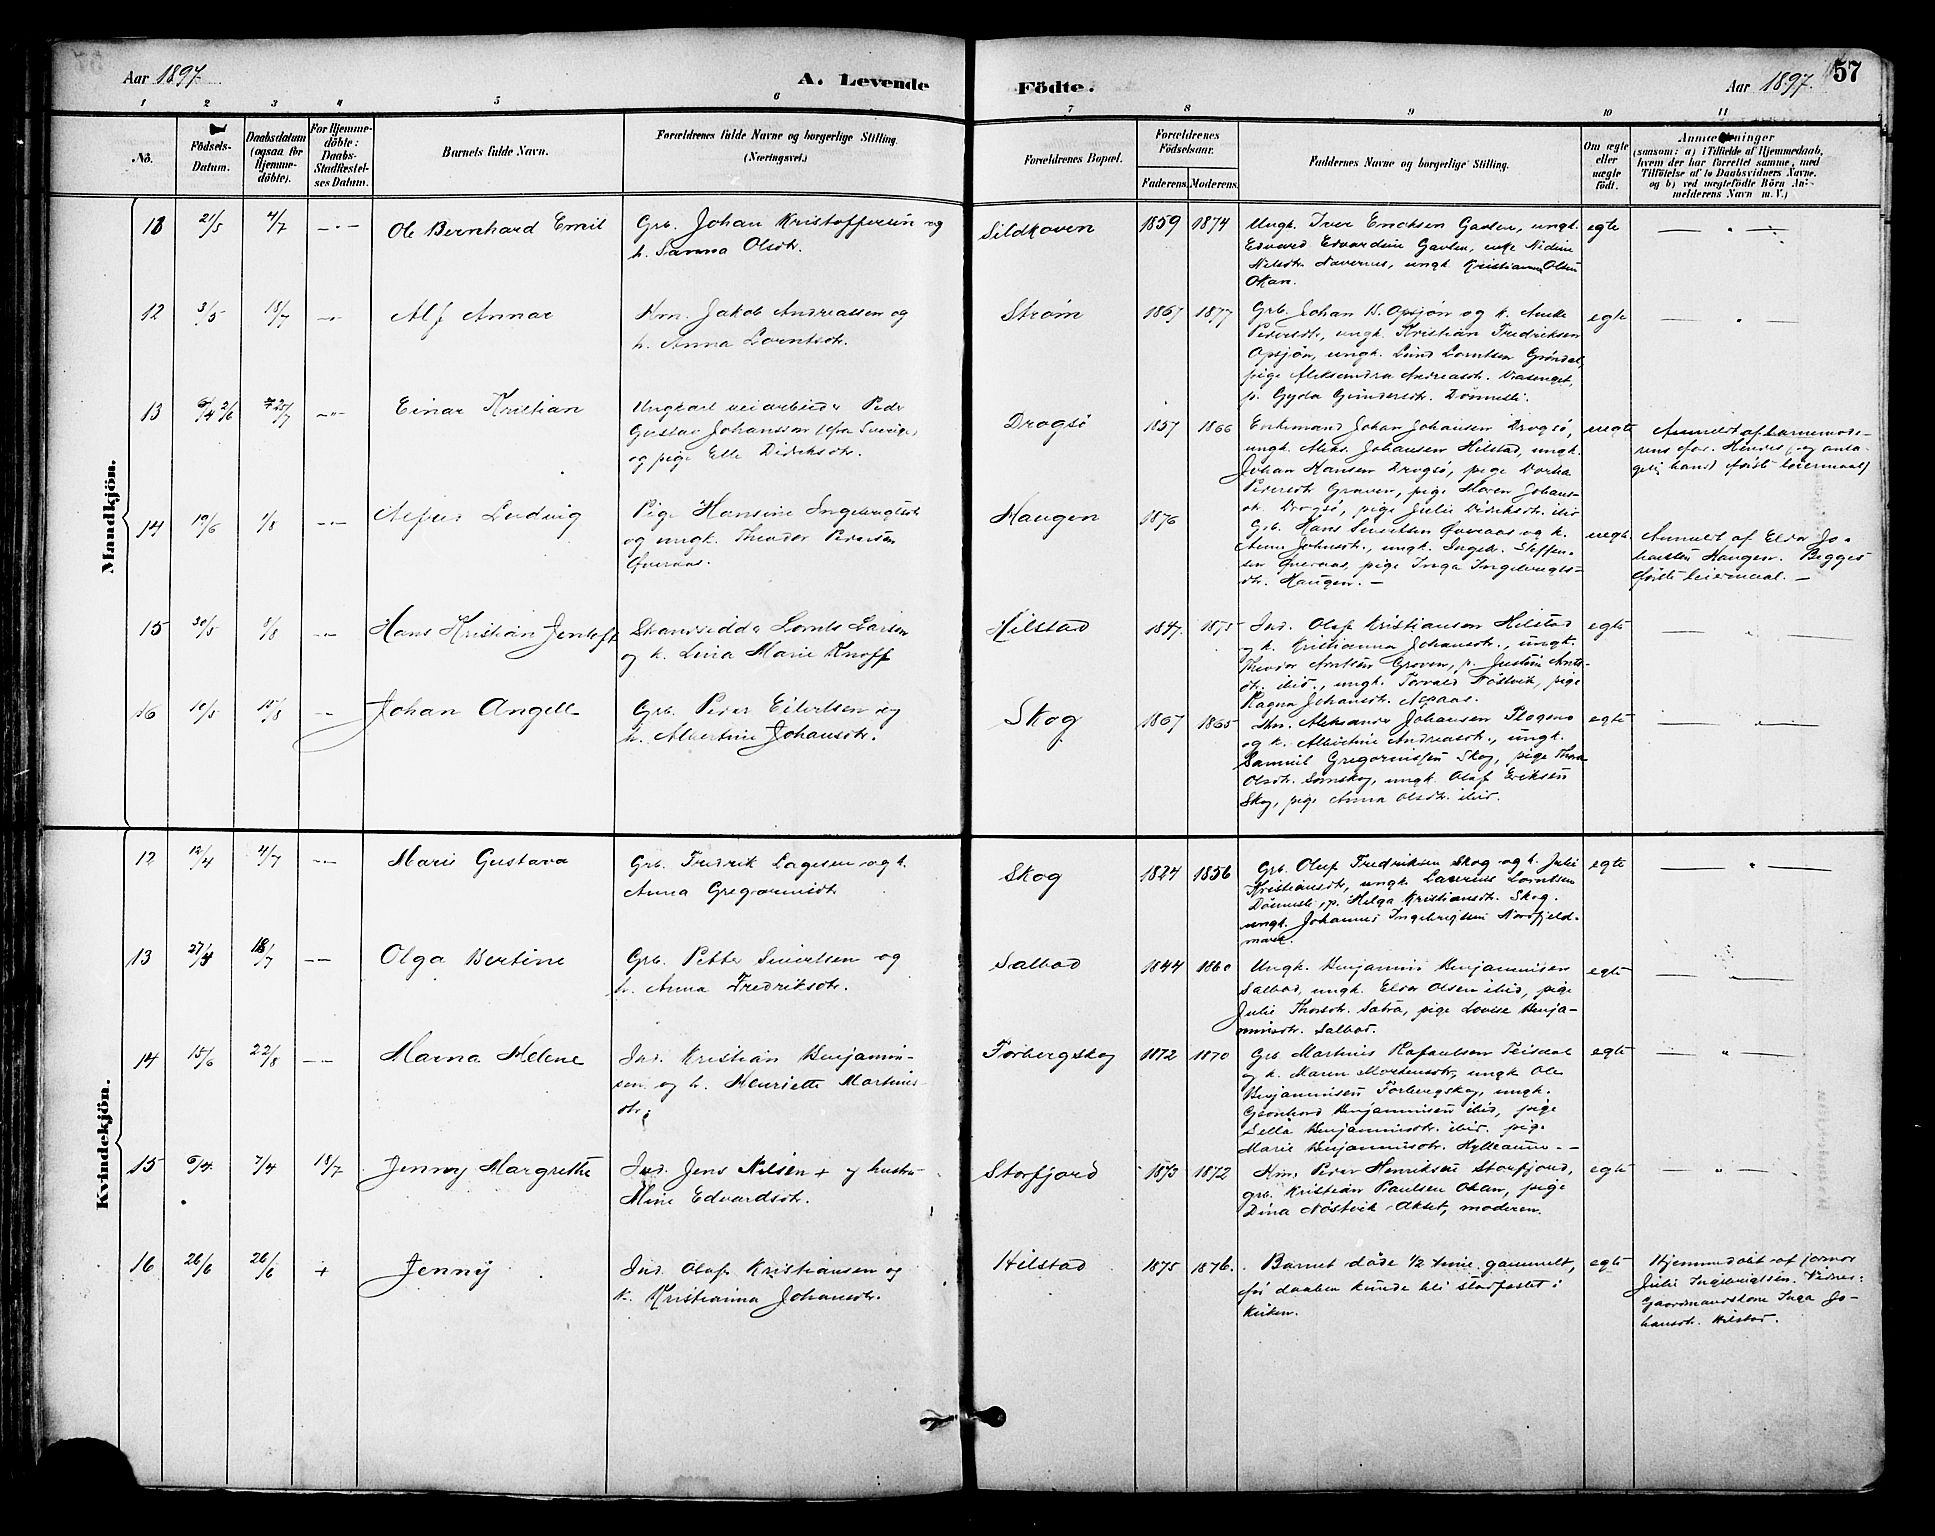 Aar 1897.
A. Levende
Födte.
Aar 1897.
57
1 2 3 4 5 6 7 8 9 10 11
No.
Födsels-
Datum.
Daabsdatum
(ogsaa for
Hjemme-
döbte).
For Hjemme-
döbte:
Daabs-
Stadfæstel-
ses Datum.
Barnets fulde Navn.
Forældrenes fulde Navne og borgerlige Stilling.
(Næringsvei.)
Forældrenes Bopæl.
Forældrenes
Födselsaar.
Faderens. Moderens.
Faddernes Navne og borgerlige Stilling.
Om ægte
eller
uægte
født.
Anmærkninger
(saasom: a) i Tilfælde af Hjemmedaab,
hvem der har forrettet samme, med
Tilföielse af to Daabsvidners Navne,
og b) ved uægtefödte Börn An-
melderens Navn m. V.)
Mandkjön.
11 21/5 4/7 Ole Bernhard Emil
Grb. Johan Kristoffersen og
h. Sanna Olsdtr.
Sildkoven 1859 1874
Ungk. Iver Ericksen Gavlen, ungk.
Edvard Edvardsen Gavlen, enke
Nilsdtr. Navernes, ungk. Kristian Olsen
Okan.
egte
12 3/5 18/7 Alf Annar
Km. Jakob Andreassen og
h. Anna Lorntsdtr.
Strøm 1867 1877
Grb. Johan B. Opsjøn og k. Anke
Pedersdtr., ungk. Kristian Fredriksen
Opsjøn, ungk. Lorntsen Grøndal,
pige Aleksandra Andreasdtr.
p. Gyda Gundersdtr. Dønneslie.
egte
13 25/7 Einar Kristian
Ungkarl veiarbeider Peder
Gustav Johansson (fra Sverige)
og pige Elle Didriksdtr.
Drogsø 1857 1866
Enkemand Johan Johansen Drogsø,
ungk. Aleks. Johansen Hilstad, ungk.
Johan Hansen Drogsø, pige Dorthea
Pedersdtr. Graven, pige Maren Johans-
dtr. Drogsø, pige Julie Didriksdtr. ibid
uegte
Anmeldt af barnemode-
ren for. Hendes (og anta-
gelig hans) første leiermaal)
14 10/6 1/8 Alfred Ludvig
Pige Hansine Ingebrigtsdtr.
og ungk. Theodor Pedersen
Øveraas.
Haugen 1876
Grb. Hans Sivertsen Øveraas og k.
Anne Johnsdtr., ungk. Ingebr. Steffen-
sen Øveraas, pige Inga Ingebrigts-
dtr. Haugen. —
uegte
Anmeldt af Elda Jo-
hansen Haugen. Begges
første leiermaal. —
15 30/5 8/8 Hans Kristian Jentoft
Strandsidder Lornts Larsen
og k. Lina Marie Knoff
Hilstad 1847. 1875
Ind. Olaf Kristiansen Hilstad
og k. Kristianna Johansdtr., ungk.
Theodor Arntsen Graven, p. Justine Arnts-
dtr. ibid., ungk. Torvald Nøstvik, pige
Ragna Johansdtr.
egte
16 10/5 15/8 Johan Angell
Grb. Peder Eilertsen og
h. Albertine Johansdtr.
Skog 1867 1865
Aleksander Johansen
og k. Albertine Andreasdtr., ungk.
Samuel Gregoriussen Skog, pige Thora
Olsdtr. Sørskog, ungk. Olaf Eriksen
Skog, pige Anna Olsdtr. ibid.
egte
Kvindekjön.
12 12/4 4/7 Marie Gustava
Grb. Fredrik Lagesen og h.
Anna Gregoriusdtr.
Skog 1824 1856
Grb. Oluf Fredriksen Skog og h. Julie
Kristiansdtr., ungk. Laurits Lorntsen
Dønneslie, p. Helga Kristiansdtr. Skog.
ungk. Johannes Ingebrigtsen Nordfjeld-
marke.
egte
13 27/4 18/7 Olga Bertine
Grb. Petter Sivertsen og
h. Anna Fredriksdtr.
Salbod 1844 1860
Ungk. Benjamin Benjaminsen
Salbod, ungk. Elder Olsen ibid, pige
Julie Thorsdtr. Satra, pige Lovise Benja-
minsdtr. Salbod.
egte
14 15/6 22/8 Marna Helene
Ind. Kristian Benjamin-
sen og h. Henriette Martinus-
dtr.
Forbergskog 1872 1870
Grb Martinus Rafaelsen Teisdal
og k. Maren Mortensdtr, ungk Ole
Benjaminsen Forbergskog, ungk.
Gjænhard Benjaminsen ibid, pige
Sella Benjaminsdtr. ibid. pige
Marie Benjaminsdtr. Hylleaune. —
egte
15 6/4 7/4 18/7 Jenny Margrethe
Ind. Jens Nilsen + og hustru
Mine Edvardsdtr.
Storfjord 1873 1872
Km. Peder Henriksen Storfjord,
grb. Kristian Paulsen Okan, pige
Dina Nøstvik Okset, moderen.
egte
16 26/6 26/6 + Jenny
Ind. Olaf Kristiansen og
k. Kristianna Johansdtr.
Hilstad 1875 1876.
Barnet døde 1/2 time gammelt,
før daaben kunde bli stadfæstet i
Kirken.
egte
Hjemmedøbt af jormor
Julie Ingebrigtsen. Vidner:
Gaardmandskone Inga Jo-
hansdtr. Hilstad.